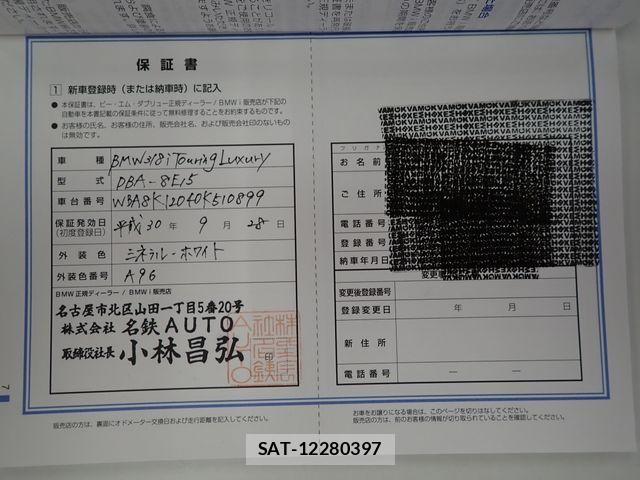 保証書
1 新車登録時（または納車時）に記入
● 本保証書は、ビー・エム・ダブリュー正規ディーラー / BMW i 販売店が下記の
自動車を本書記載の保証条件に従って無料修理することをお約束するものです。
● お客様の氏名、お客様の住所、販売会社名、および販売会社印のないもの
は無効です。
車種 BMW318i Touring Luxury
型式 DBA-8E15
車台番号 WBA8K12040K510899
保証発効日
(初度登録日) 平成30年 9月 28日
外装色 ミネラルーホワイト
外装色番号 A96
BMW 正規ディーラー / BMW i 販売店
名古屋市北区山田一丁目5番20号
株式会社 名鉄AUTO
取締役社長 小林昌弘 印
販売店の方は、裏面にオドメーター交換日および走行距離を記入してください。
フリガナ
お名前
ご住所
電話番号
登録番号
納車年月日
変更後登録番号
登録変更日 年 月 日
新住所
電話番号 — —
お車をお譲りになる場合は、このページを切りはなしてください。
販売店の方は、前のお客様の情報が切り取られていることを確認してください。
7
SAT-12280397